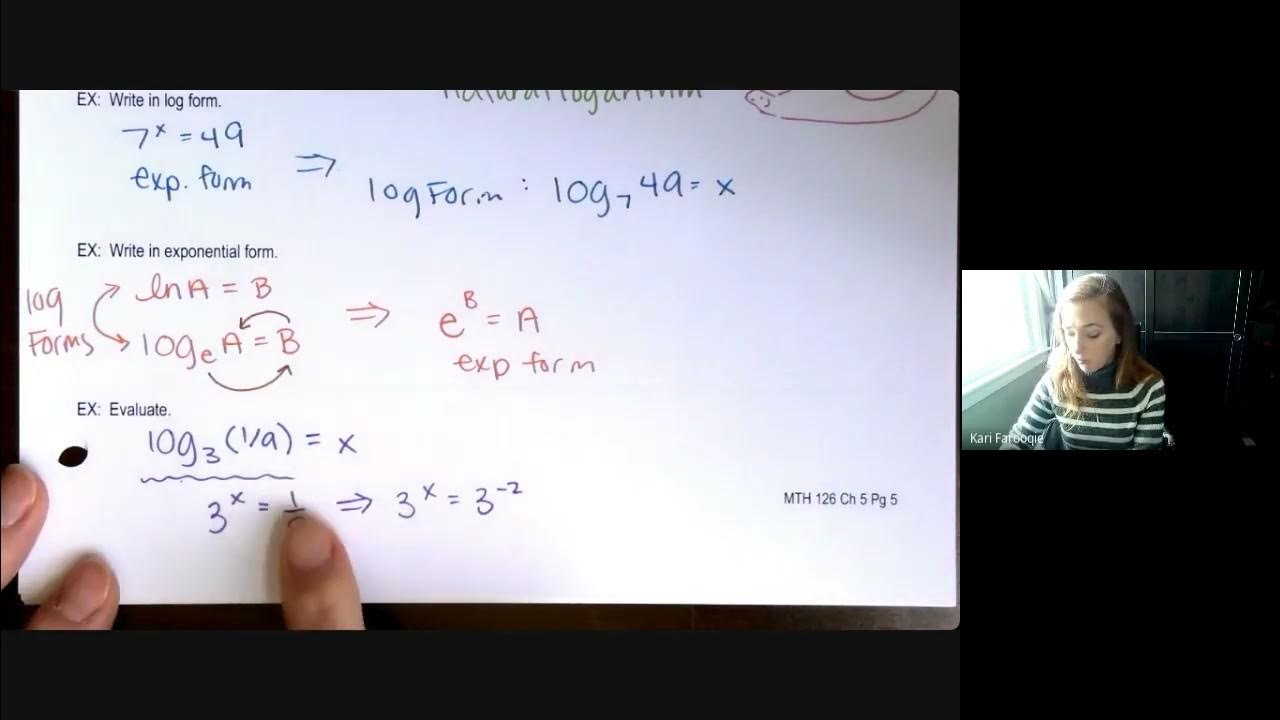 EX: Write in log form.
natural logarithm
7ˣ = 49
exp. form ⇒ log Form : log₇ 49 = x
EX: Write in exponential form.
log Forms
ln A = B
logₑ A = B
⇒ eᴮ = A
exp form
EX: Evaluate.
log₃ (1/9) = x
3ˣ = 1 ⇒ 3ˣ = 3⁻²
MTH 126 Ch 5 Pg 5
Kari Farooqie